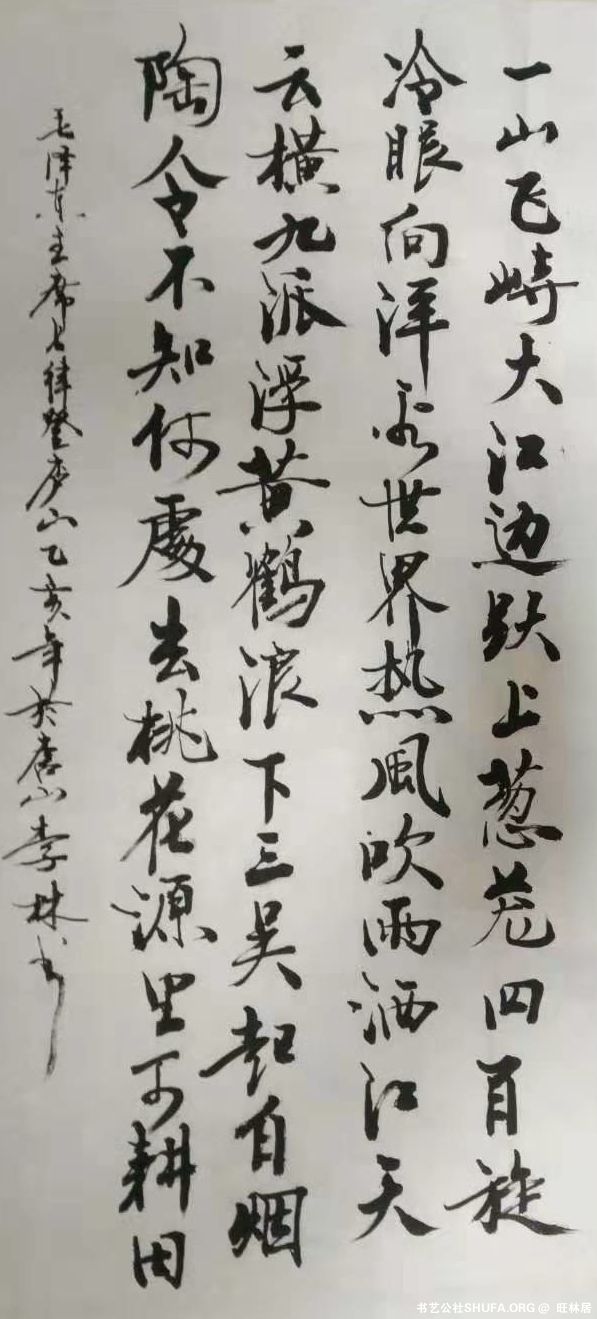 一山飞峙大江边跃上葱茏四百旋
冷眼向洋看世界热风吹雨洒江天
云横九派浮黄鹤浪下三吴起白烟
陶令不知何處去桃花源里可耕田
毛泽东主席七律登庐山乙亥年於唐山李林书
书艺公社SHUFA.ORG @ 旺林居